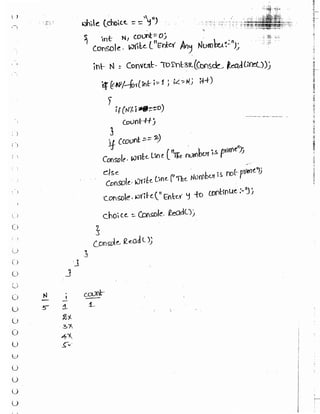 while (choice == "y")
{ int N, count=0;
Console. Write ("Enter Any Number:-");
int N = Convert. ToInt32(Console. ReadLine());
for(int i=1; i<=N; i++)
{
if(N%i==0)
Count++;
}
if (count == 2)
Console. Write Line ("The number is prime");
else
Console. Write Line ("The Number is not prime");
Console. Write("Enter y to continue :-");
choice = Console. Read();
}
Console. Read();
}
}
}
N i count
5 1 1
2x
3x
4x
5-